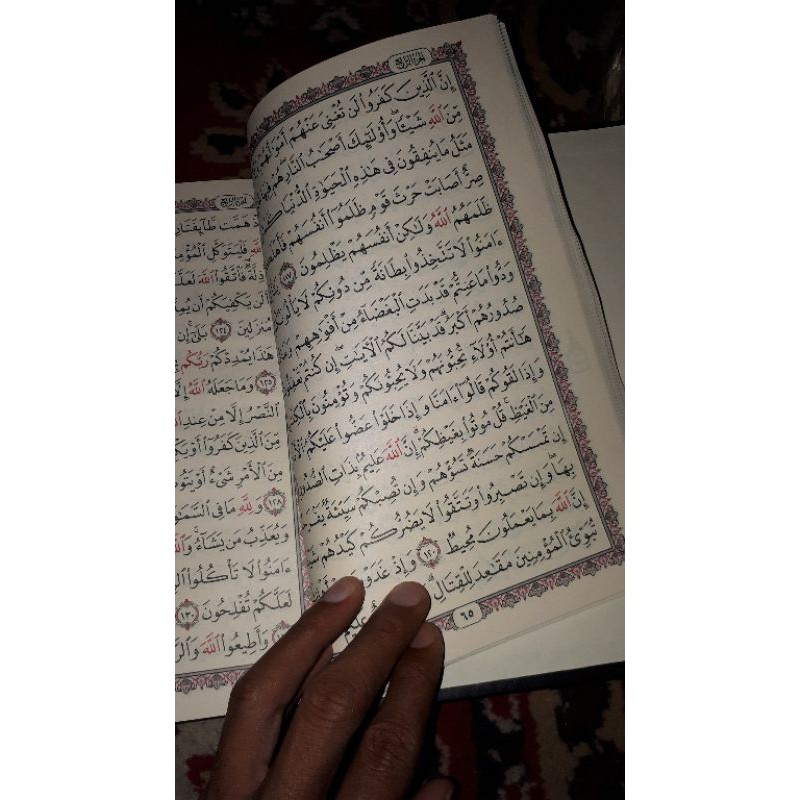 الجزء الرابع
إِنَّ ٱلَّذِينَ كَفَرُوا۟ لَن تُغْنِىَ عَنْهُمْ أَمْوَٰلُهُمْ
مِّنَ ٱللَّهِ شَيْـًٔا وَأُو۟لَـٰٓئِكَ أَصْحَـٰبُ ٱلنَّارِ هُمْ فِيهَا
مَثَلُ مَا يُنفِقُونَ فِى هَـٰذِهِ ٱلْحَيَوٰةِ ٱلدُّنْيَا
صِرٌّ أَصَابَتْ حَرْثَ قَوْمٍ ظَلَمُوٓا۟ أَنفُسَهُمْ
ظَلَمَهُمُ ٱللَّهُ وَلَـٰكِنْ أَنفُسَهُمْ يَظْلِمُونَ ١١٧
ءَامَنُوا۟ لَا تَتَّخِذُوا۟ بِطَانَةً مِّن دُونِكُمْ لَا يَأْلُونَ
وَدُّوا۟ مَا عَنِتُّمْ قَدْ بَدَتِ ٱلْبَغْضَآءُ مِنْ أَفْوَٰهِهِمْ
صُدُورُهُمْ أَكْبَرُ قَدْ بَيَّنَّا لَكُمُ ٱلْـَٔايَـٰتِ إِن كُنتُمْ
هَـٰٓأَنتُمْ أُو۟لَآءِ تُحِبُّونَهُمْ وَلَا يُحِبُّونَكُمْ وَتُؤْمِنُونَ
وَإِذَا لَقُوكُمْ قَالُوٓا۟ ءَامَنَّا وَإِذَا خَلَوْا۟ عَضُّوا۟ عَلَيْكُمُ
مِنَ ٱلْغَيْظِ قُلْ مُوتُوا۟ بِغَيْظِكُمْ إِنَّ ٱللَّهَ عَلِيمٌۢ بِذَاتِ ٱلصُّدُورِ
إِن تَمْسَسْكُمْ حَسَنَةٌ تَسُؤْهُمْ وَإِن تُصِبْكُمْ سَيِّئَةٌ
بِهَا وَإِن تَصْبِرُوا۟ وَتَتَّقُوا۟ لَا يَضُرُّكُمْ كَيْدُهُمْ
إِنَّ ٱللَّهَ بِمَا يَعْمَلُونَ مُحِيطٌ ١٢٠ وَإِذْ غَدَوْتَ
تُبَوِّئُ ٱلْمُؤْمِنِينَ مَقَـٰعِدَ لِلْقِتَالِ
عَلِيمٌ
٦٥
الجزء الرابع
هَمَّت طَّآئِفَتَانِ
فَلْيَتَوَكَّلِ
فَٱتَّقُوا۟ ٱللَّهَ
لَن يَكْفِيَكُمْ أَن
مُنزَلِينَ ١٢٤ بَلَىٰٓ إِن
هَـٰذَا يُمْدِدْكُمْ رَبُّكُم
١٢٥ وَمَا جَعَلَهُ ٱللَّهُ
ٱلنَّصْرُ إِلَّا مِنْ عِندِ
مِّنَ ٱلَّذِينَ كَفَرُوٓا۟ أَوْ
مِنَ ٱلْأَمْرِ شَىْءٌ أَوْ
١٢٨ وَلِلَّهِ مَا فِى
وَيُعَذِّبُ مَن يَشَآءُ
ءَامَنُوا۟ لَا تَأْكُلُوا۟
لَعَلَّكُمْ تُفْلِحُونَ ١٣٠
وَأَطِيعُوا۟ ٱللَّهَ